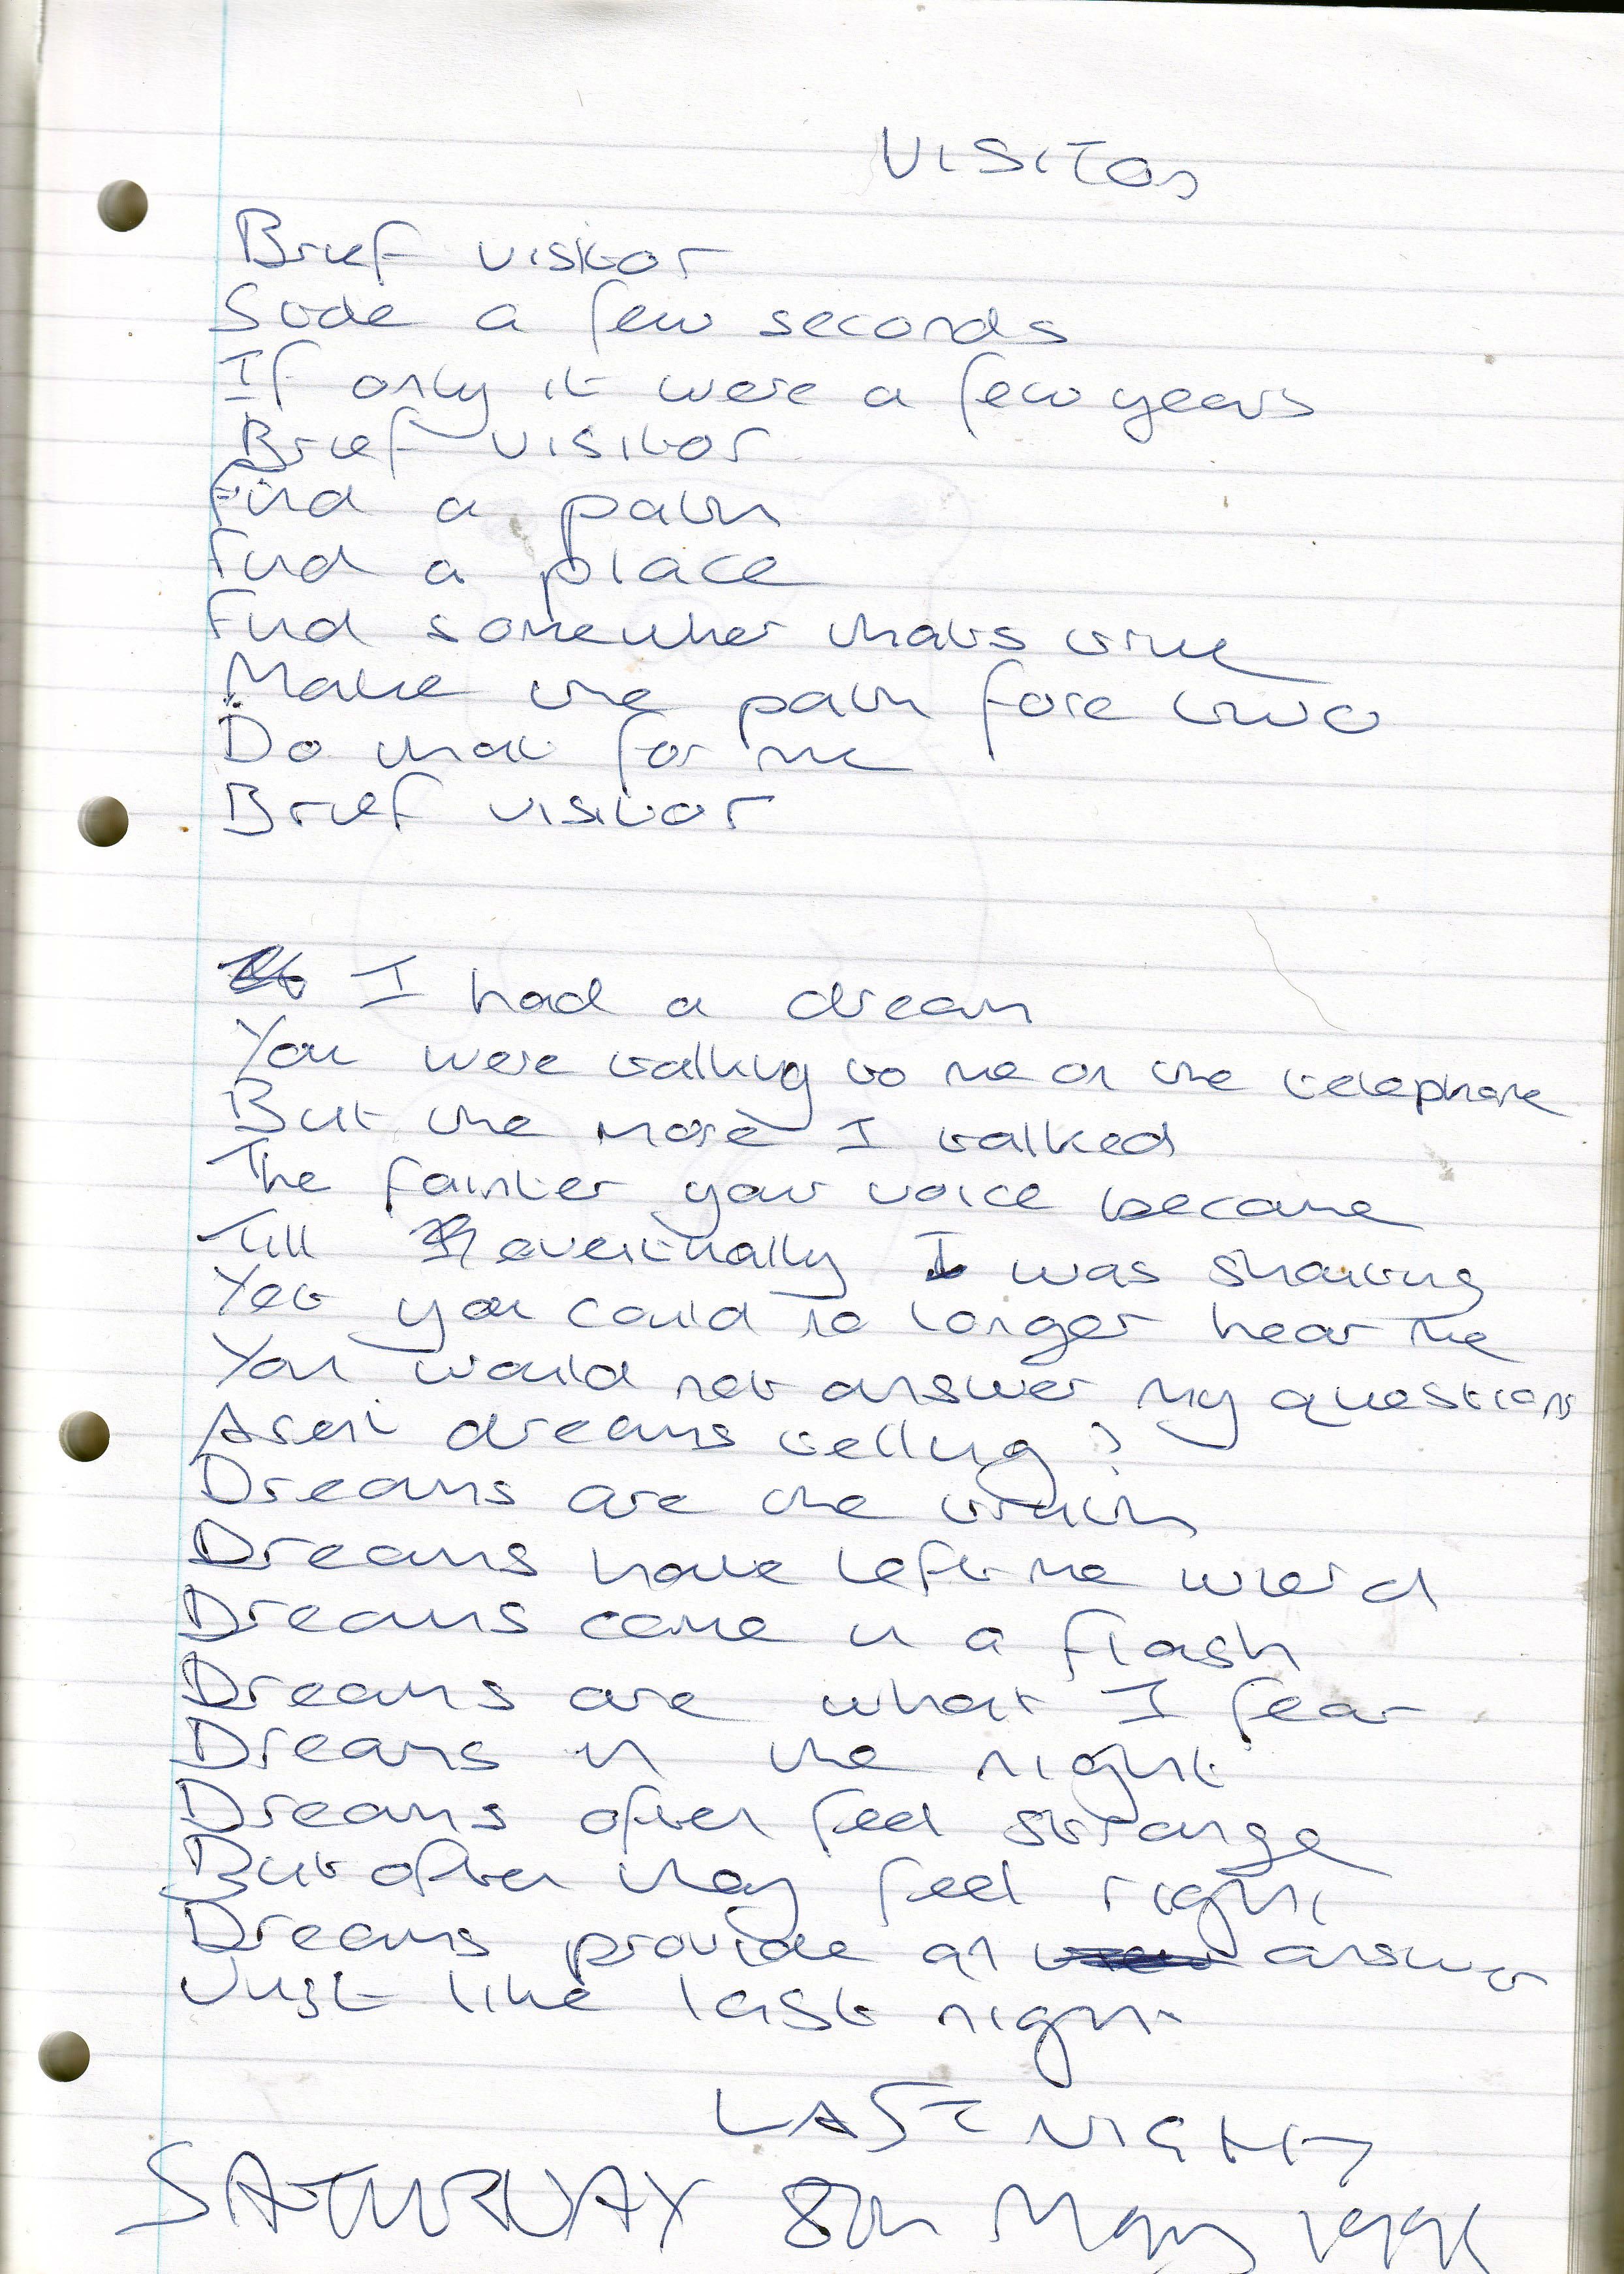 VISITOR
Brief visitor
Sude a few seconds
If only it were a few years
Brief visitor
Find a path
Find a place
Find somewher thats true
Make the path fore two
Do that for me
Brief visitor
I had a dream
You were talking to me on the telephone
But the more I talked
The fainter your voice became
Till eventually I was shouting
Yet you could no longer hear me
You would not answer my questions
Arent dreams telling?
Dreams are the truth
Dreams have left me wierd
Dreams come in a flash
Dreams are what I fear
Dreams in the night
Dreams often feel strange
But often they feel right
Dreams provide an answer
Just like last night
LAST NIGHT
SATURDAY 8th May